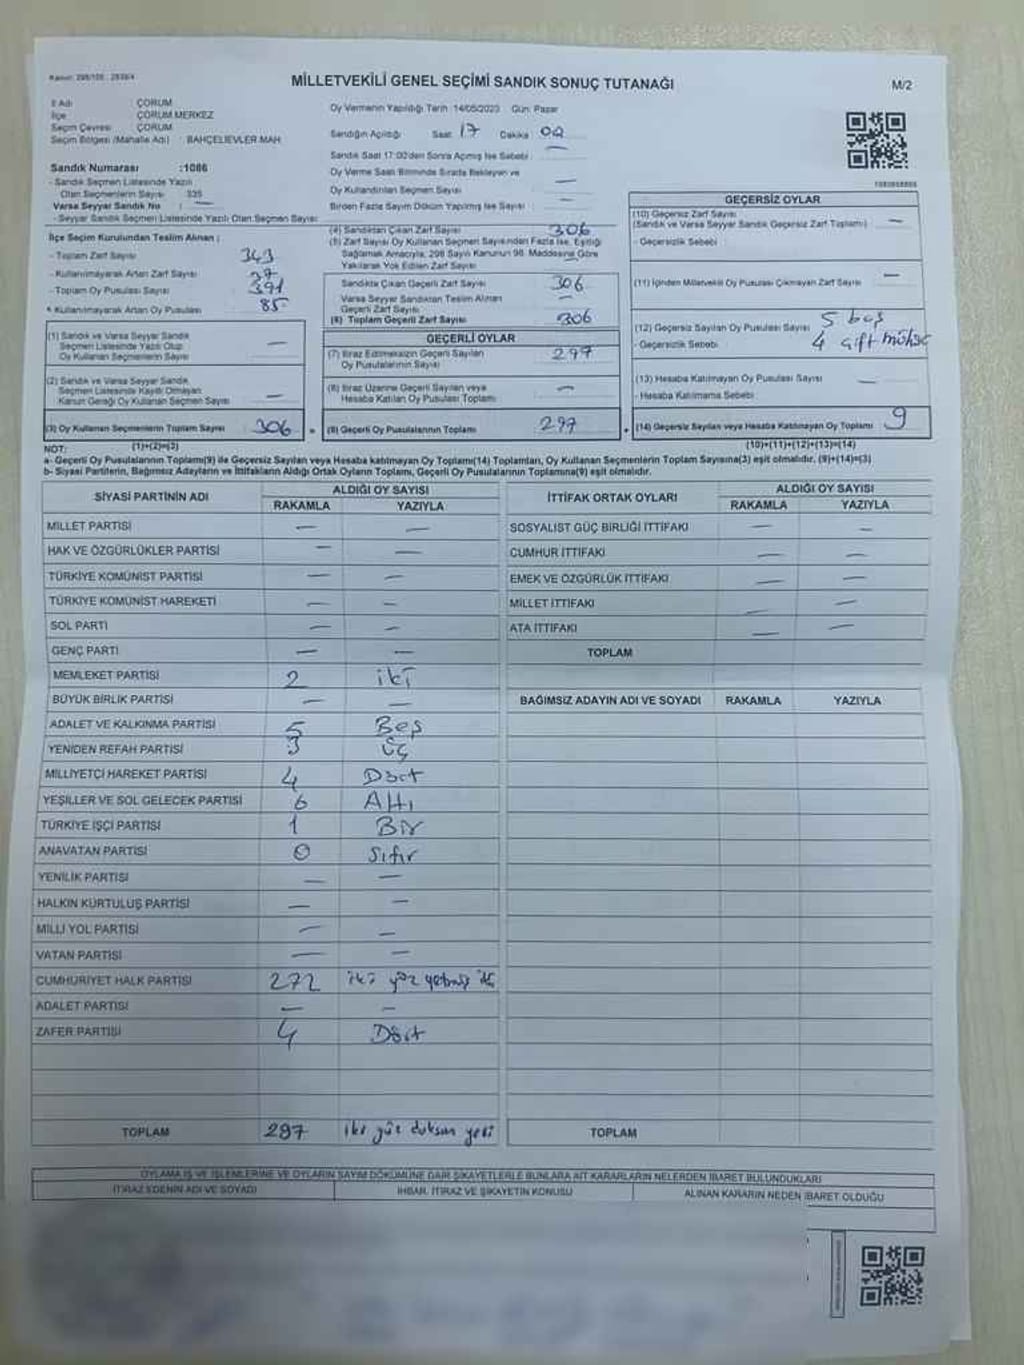 Kanun: 298/105 - 2839/4
MİLLETVEKİLİ GENEL SEÇİMİ SANDIK SONUÇ TUTANAĞI
M/2
İl Adı : ÇORUM
İlçe : ÇORUM MERKEZ
Seçim Çevresi : ÇORUM
Seçim Bölgesi (Mahalle Adı) : BAHÇELİEVLER MAH
Sandık Numarası :1086
- Sandık Seçmen Listesinde Yazılı
Olan Seçmenlerin Sayısı : 335
Varsa Seyyar Sandık No : —
- Seyyar Sandık Seçmen Listesinde Yazılı Olan Seçmen Sayısı:
Oy Vermenin Yapıldığı Tarih :14/05/2023 Gün: Pazar
Sandığın Açıldığı Saat 17 Dakika 00
Sandık Saat 17:00'den Sonra Açılmış İse Sebebi : —
Oy Verme Saati Bitiminde Sırada Bekleyen ve
Oy Kullandırılan Seçmen Sayısı : —
Birden Fazla Sayım Döküm Yapılmış İse Sayısı : —
İlçe Seçim Kurulundan Teslim Alınan :
- Toplam Zarf Sayısı : 343
- Kullanılmayarak Artan Zarf Sayısı : 37
- Toplam Oy Pusulası Sayısı : 391
- Kullanılmayarak Artan Oy Pusulası : 85
(1) Sandık ve Varsa Seyyar Sandık
Seçmen Listesinde Yazılı Olup
Oy Kullanan Seçmenlerin Sayısı : —
(2) Sandık ve Varsa Seyyar Sandık
Seçmen Listesinde Kayıtlı Olmayan
Kanun Gereği Oy Kullanan Seçmen Sayısı : —
(3) Oy Kullanan Seçmenlerin Toplam Sayısı : 306
(1)+(2)=(3)
(4) Sandıktan Çıkan Zarf Sayısı : 306
(5) Zarf Sayısı Oy Kullanan Seçmen Sayısından Fazla İse, Eşitliği
Sağlamak Amacıyla, 298 Sayılı Kanunun 98. Maddesine Göre
Yakılarak Yok Edilen Zarf Sayısı :
Sandıkta Çıkan Geçerli Zarf Sayısı : 306
Varsa Seyyar Sandıktan Teslim Alınan
Geçerli Zarf Sayısı : —
(6) Toplam Geçerli Zarf Sayısı : 306
GEÇERLİ OYLAR
(7) İtiraz Edilmeksizin Geçerli Sayılan
Oy Pusulalarının Sayısı : 297
(8) İtiraz Üzerine Geçerli Sayılan veya
Hesaba Katılan Oy Pusulası Toplamı : —
= (9) Geçerli Oy Pusulalarının Toplamı : 297
GEÇERSİZ OYLAR
(10) Geçersiz Zarf Sayısı
(Sandık ve Varsa Seyyar Sandık Geçersiz Zarf Toplamı) : —
- Geçersizlik Sebebi :
(11) İçinden Milletvekili Oy Pusulası Çıkmayan Zarf Sayısı : —
(12) Geçersiz Sayılan Oy Pusulası Sayısı : 5 boş
- Geçersizlik Sebebi : 4 çift mühür
(13) Hesaba Katılmayan Oy Pusulası Sayısı : —
- Hesaba Katılmama Sebebi :
+ (14) Geçersiz Sayılan veya Hesaba Katılmayan Oy Toplamı : 9
(10)+(11)+(12)+(13)=(14)
NOT:
a- Geçerli Oy Pusulalarının Toplamı(9) ile Geçersiz Sayılan veya Hesaba katılmayan Oy Toplamı(14) Toplamları, Oy Kullanan Seçmenlerin Toplam Sayısına(3) eşit olmalıdır. (9)+(14)=(3)
b- Siyasi Partilerin, Bağımsız Adayların ve İttifakların Aldığı Ortak Oyların Toplamı, Geçerli Oy Pusulalarının Toplamına(9) eşit olmalıdır.
SİYASİ PARTİNİN ADI
ALDIĞI OY SAYISI
RAKAMLA YAZIYLA
MİLLET PARTİSİ — —
HAK VE ÖZGÜRLÜKLER PARTİSİ — —
TÜRKİYE KOMÜNİST PARTİSİ — —
TÜRKİYE KOMÜNİST HAREKETİ — —
SOL PARTİ — —
GENÇ PARTİ — —
MEMLEKET PARTİSİ 2 iki
BÜYÜK BİRLİK PARTİSİ — —
ADALET VE KALKINMA PARTİSİ 5 Beş
YENİDEN REFAH PARTİSİ 3 Üç
MİLLİYETÇİ HAREKET PARTİSİ 4 Dört
YEŞİLLER VE SOL GELECEK PARTİSİ 6 Altı
TÜRKİYE İŞÇİ PARTİSİ 1 Bir
ANAVATAN PARTİSİ 0 Sıfır
YENİLİK PARTİSİ — —
HALKIN KURTULUŞ PARTİSİ — —
MİLLİ YOL PARTİSİ — —
VATAN PARTİSİ — —
CUMHURİYET HALK PARTİSİ 272 iki yüz yetmiş iki
ADALET PARTİSİ — —
ZAFER PARTİSİ 4 Dört
TOPLAM 297 iki yüz doksan yedi
İTTİFAK ORTAK OYLARI
ALDIĞI OY SAYISI
RAKAMLA YAZIYLA
SOSYALİST GÜÇ BİRLİĞİ İTTİFAKI — —
CUMHUR İTTİFAKI — —
EMEK VE ÖZGÜRLÜK İTTİFAKI — —
MİLLET İTTİFAKI — —
ATA İTTİFAKI — —
TOPLAM
BAĞIMSIZ ADAYIN ADI VE SOYADI RAKAMLA YAZIYLA
TOPLAM
OYLAMA İŞ VE İŞLEMLERİNE VE OYLARIN SAYIM DÖKÜMÜNE DAİR ŞİKAYETLERLE BUNLARA AİT KARARLARIN NELERDEN İBARET BULUNDUKLARI
İTİRAZ EDENİN ADI VE SOYADI
İHBAR, İTİRAZ VE ŞİKAYETİN KONUSU
ALINAN KARARIN NEDEN İBARET OLDUĞU